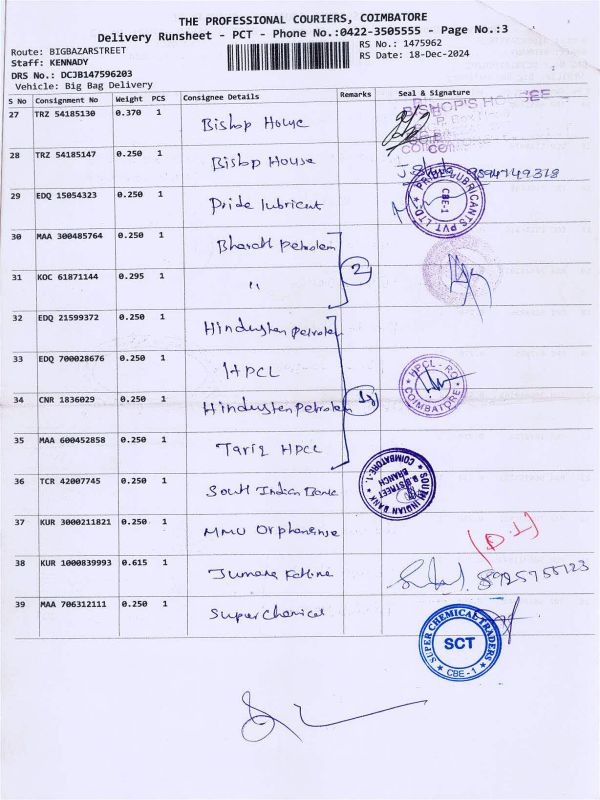 THE PROFESSIONAL COURIERS, COIMBATORE
Delivery Runsheet - PCT - Phone No.:0422-3505555 - Page No.:3
Route: BIGBAZARSTREET
RS No.: 1475962
Staff: KENNADY
RS Date: 18-Dec-2024
DRS No.: DCJB147596203
Vehicle: Big Bag Delivery
S No Consignment No Weight PCS Consignee Details Remarks Seal & Signature
27 TRZ 54185130 0.370 1 Bishop House
BISHOP'S HOUSE
28 TRZ 54185147 0.250 1 Bishop House
29 EDQ 15054323 0.250 1 Pride lubricant
PRIDE LUBRICANTS PVT LTD. CBE-1
30 MAA 300485764 0.250 1 Bharath Petroleum
2
31 KOC 61871144 0.295 1 "
32 EDQ 21599372 0.250 1 Hindusten petrolem
33 EDQ 700028676 0.250 1 HPCL
HPCL-RO COIMBATORE
34 CNR 1836029 0.250 1 Hindusten Petrolem
35 MAA 600452858 0.250 1 Tariq HPCL
36 TCR 42007745 0.250 1 South Indian Bank
SOUTH INDIAN BANK B.B STREET BRANCH COIMBATORE-1.
37 KUR 3000211821 0.250 1 MMU Orphanense
(D.1)
38 KUR 1000839993 0.615 1 Jumana Fathine
8925755123
39 MAA 706312111 0.250 1 Super Chemical
SUPER CHEMICAL TRADERS SCT CBE-1